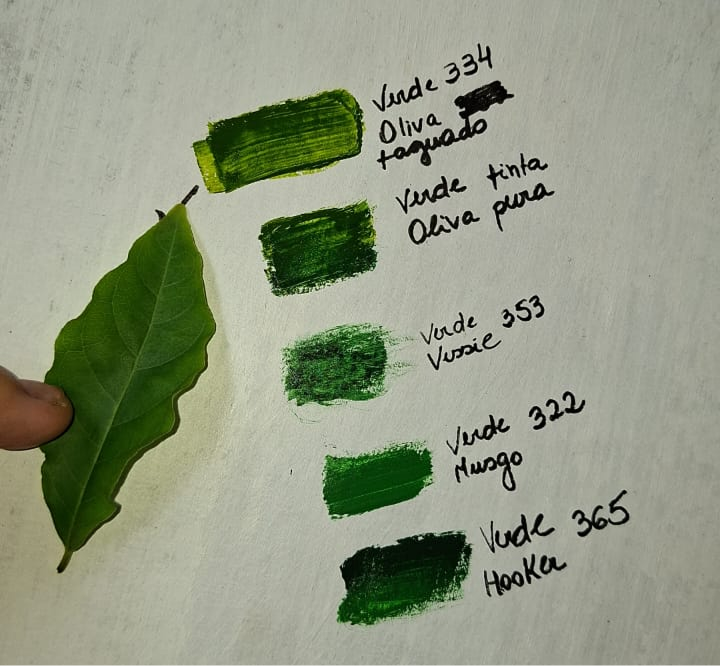 Verde 334
Oliva
taguado
Verde tinta
Oliva pura
Verde 353
Vessie
Verde 322
Musgo
Verde 365
Hooker